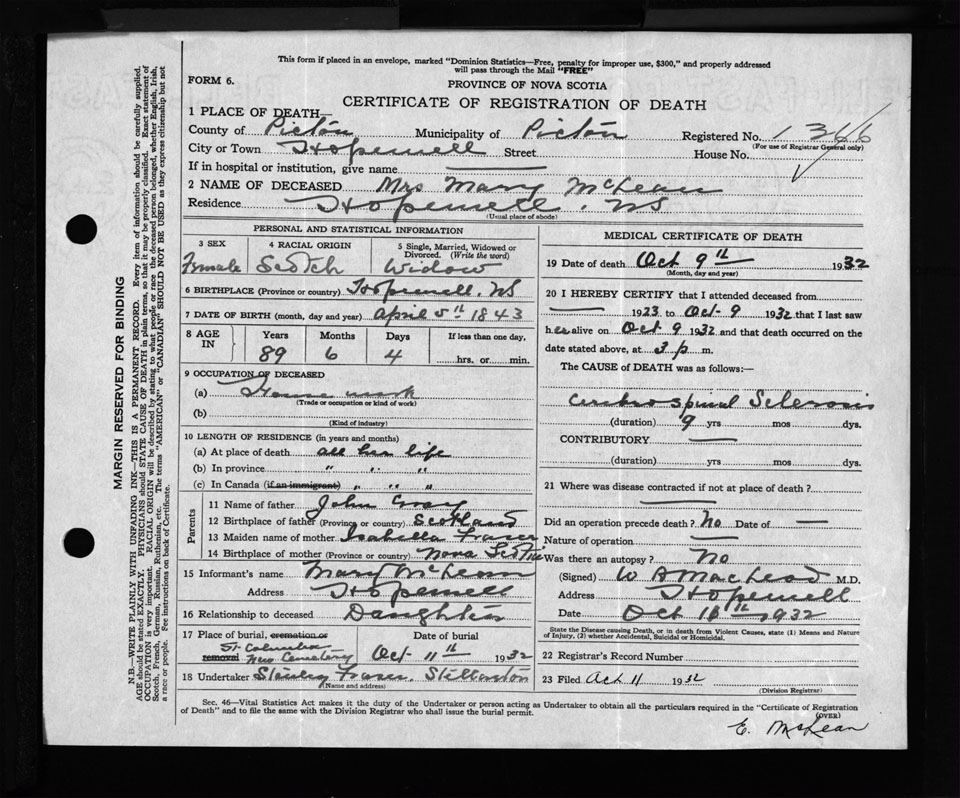 This form if placed in an envelope, marked "Dominion Statistics—Free, penalty for improper use, $300," and properly addressed
will pass through the Mail "FREE"
FORM 6.
PROVINCE OF NOVA SCOTIA
CERTIFICATE OF REGISTRATION OF DEATH
1 PLACE OF DEATH
County of Pictou Municipality of Pictou Registered No. 1366
(For use of Registrar General only)
City or Town Hopewell Street House No.
If in hospital or institution, give name
2 NAME OF DECEASED Mrs Mary McLean
Residence Hopewell. NS
(Usual place of abode)
PERSONAL AND STATISTICAL INFORMATION
3 SEX 4 RACIAL ORIGIN 5 Single, Married, Widowed or
Divorced. (Write the word)
Female Scotch Widow
6 BIRTHPLACE (Province or country) Hopewell. NS
7 DATE OF BIRTH (month, day and year) April 5th 1843
8 AGE IN Years Months Days If less than one day,
89 6 4 hrs. or min.
9 OCCUPATION OF DECEASED
(a) House work
(Trade or occupation or kind of work)
(b)
(Kind of industry)
10 LENGTH OF RESIDENCE (in years and months)
(a) At place of death all her life
(b) In province " " "
(c) In Canada (if an immigrant) " " "
Parents
11 Name of father John Gray
12 Birthplace of father (Province or country) Scotland
13 Maiden name of mother Isabella Fraser
14 Birthplace of mother (Province or country) Nova Scotia
15 Informant's name Mary McLean
Address Hopewell
16 Relationship to deceased Daughter
17 Place of burial, cremation or Date of burial
removal St. Columba New Cemetery Oct 11th 1932
18 Undertaker Stanley Fraser. Stellarton
(Name and address)
MEDICAL CERTIFICATE OF DEATH
19 Date of death Oct 9th 1932
(Month, day and year)
20 I HEREBY CERTIFY that I attended deceased from
1923 to Oct-9 1932 that I last saw
her alive on Oct 9 1932 and that death occurred on the
date stated above, at 3 p m.
The CAUSE of DEATH was as follows:—
Cerebrospinal Sclerosis
(duration) 9 yrs mos dys.
CONTRIBUTORY
(duration) yrs mos dys.
21 Where was disease contracted if not at place of death?
Did an operation precede death? No Date of —
Nature of operation —
Was there an autopsy? No
(Signed) W A MacLeod M.D.
Address Hopewell
Date Oct 1932
State the Disease causing Death, or in death from Violent Causes, state (1) Means and Nature
of Injury, (2) whether Accidental, Suicidal or Homicidal.
22 Registrar's Record Number
23 Filed Oct 11 1932
(Division Registrar)
Sec. 46—Vital Statistics Act makes it the duty of the Undertaker or person acting as Undertaker to obtain all the particulars required in the "Certificate of Registration
of Death" and to file the same with the Division Registrar who shall issue the burial permit.
(OVER)
E. McLean
MARGIN RESERVED FOR BINDING
N.B.—WRITE PLAINLY WITH UNFADING INK—THIS IS A PERMANENT RECORD. Every item of information should be carefully supplied.
AGE should be stated EXACTLY. PHYSICIANS should STATE CAUSE OF DEATH in plain terms, so that it may be properly classified. Exact statement of
OCCUPATION is very important. RACIAL ORIGIN will be described by stating to what people or race the deceased person belonged, whether English, Irish,
Scotch, French, German, Russian, Ruthenian, etc. The terms "AMERICAN" or "CANADIAN" SHOULD NOT BE USED as they express citizenship but not
a race or people. See instructions on back of Certificate.